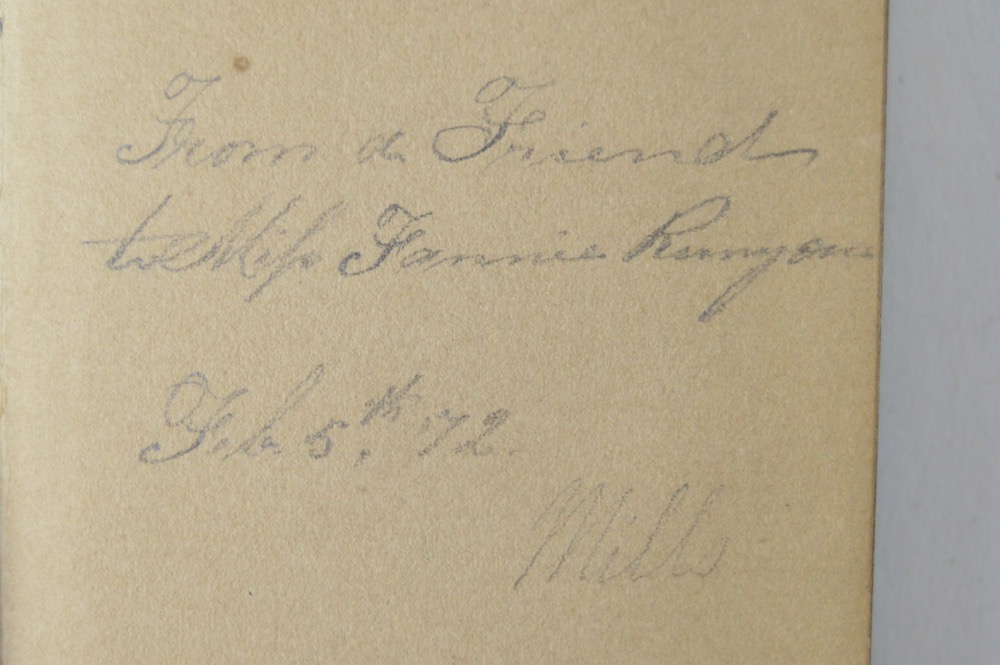 From a Friend
to Miss Fannie Runyon
Feb 5th, 72
Mills